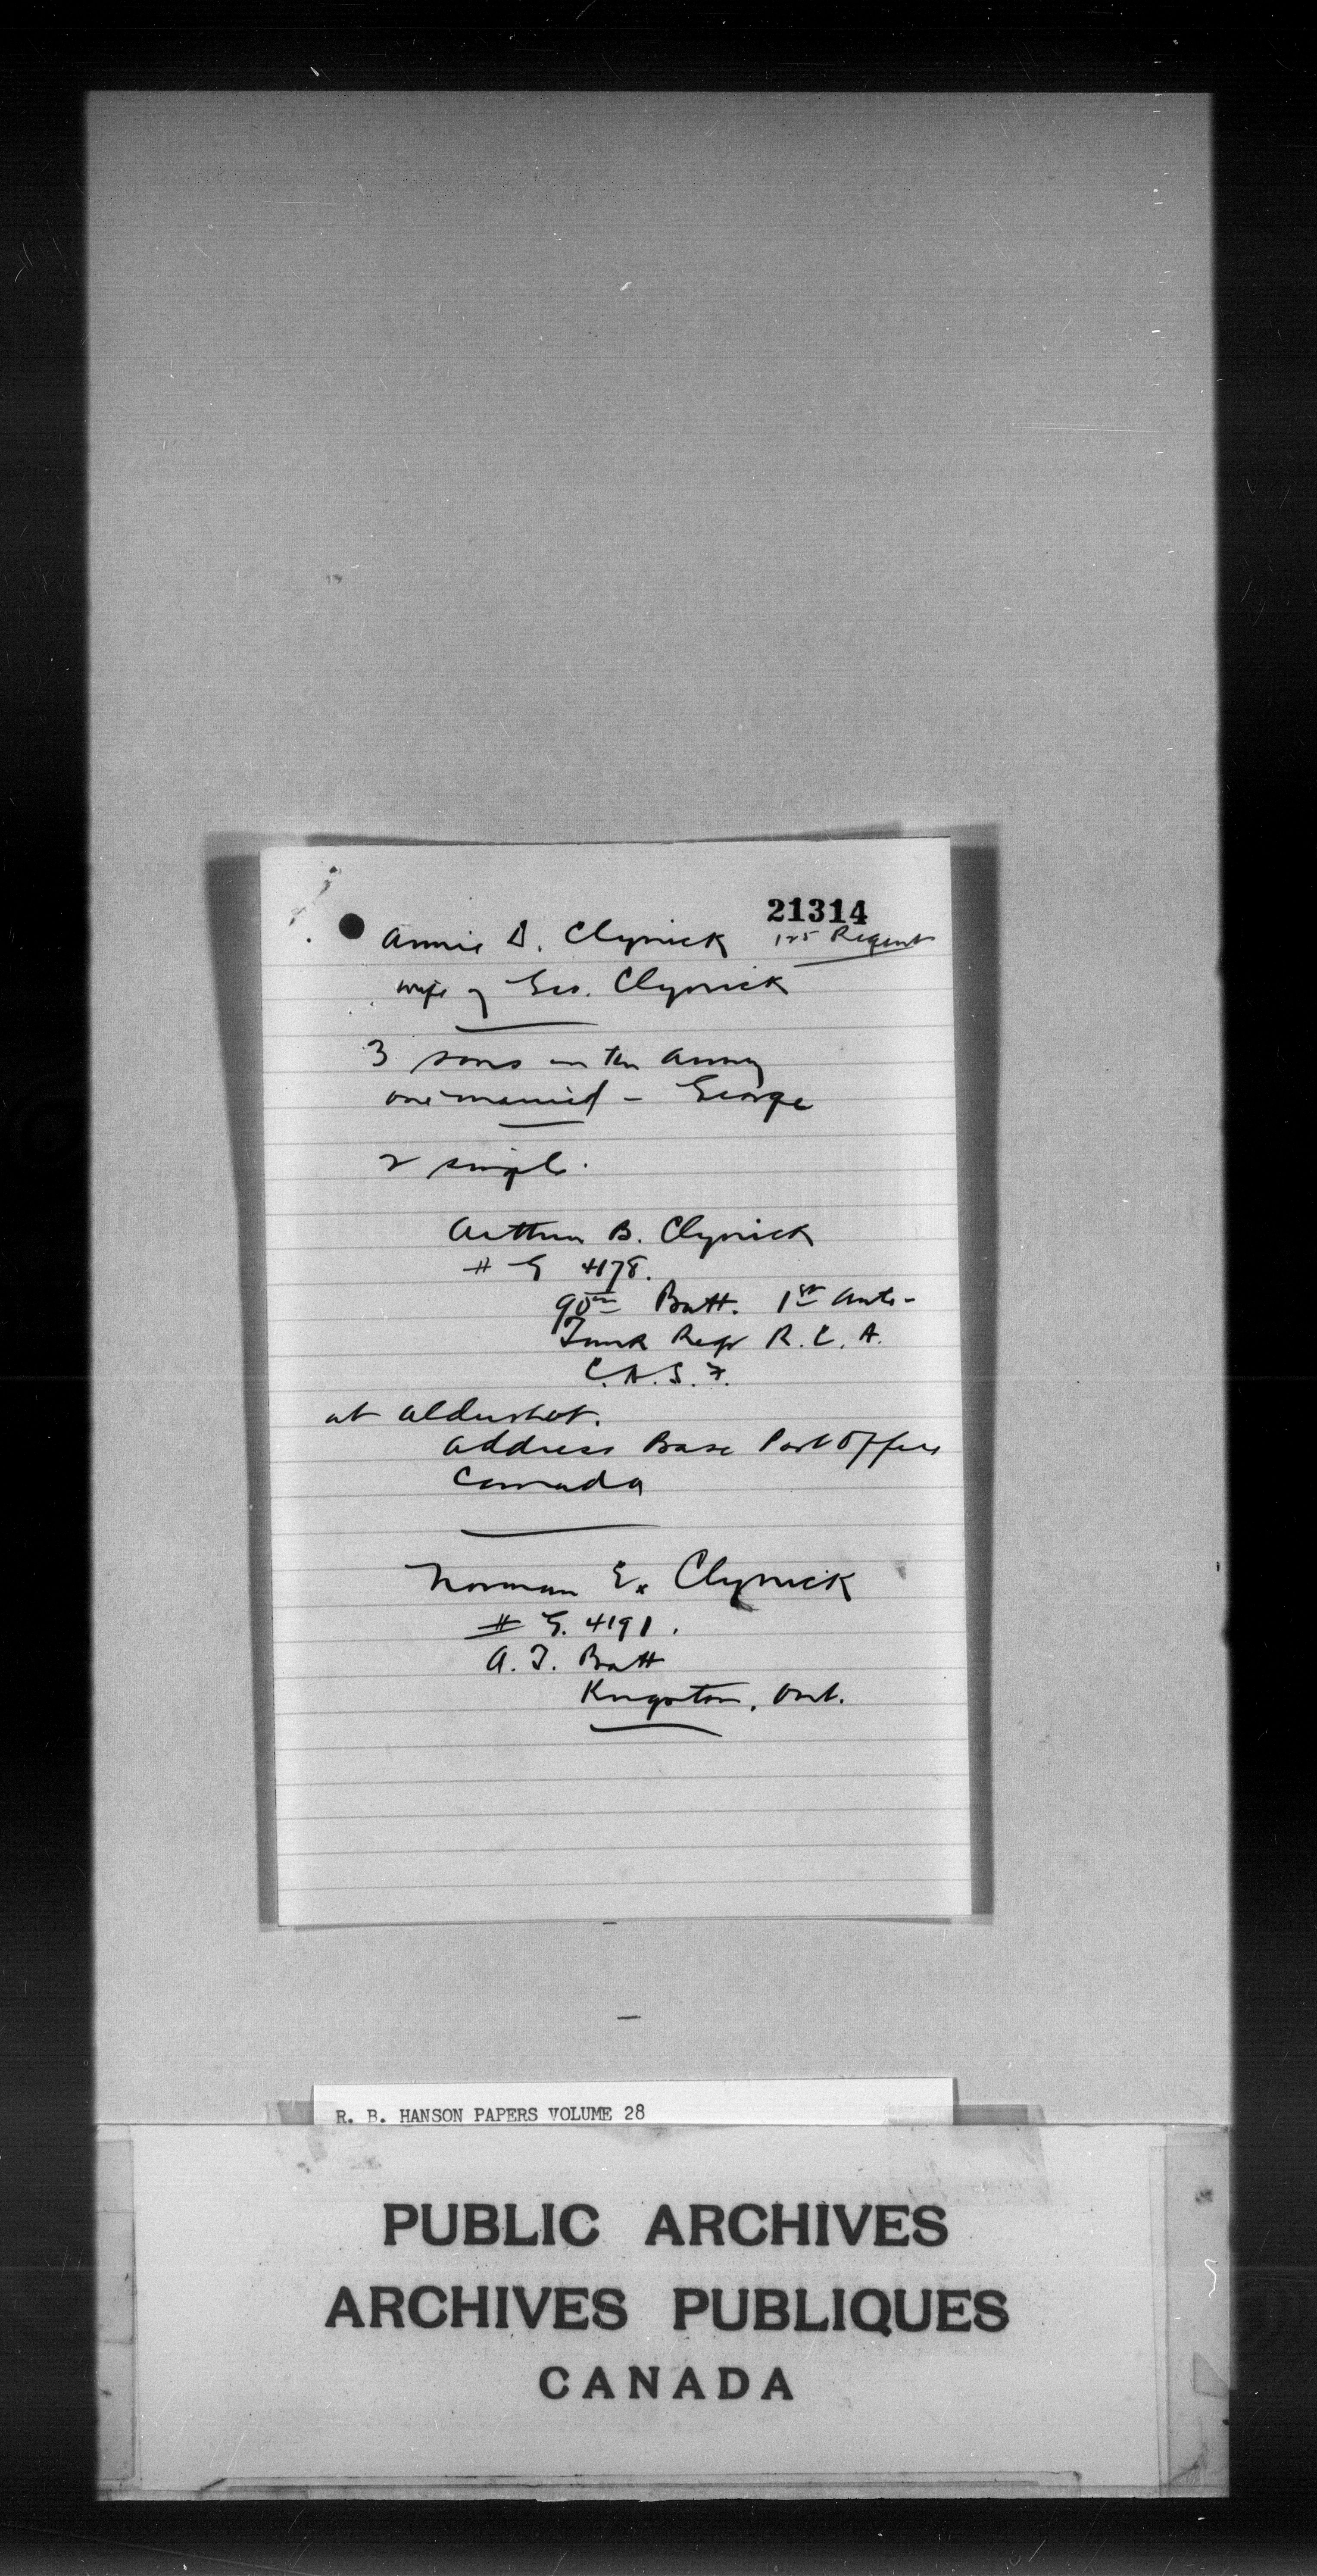 21314
Annie D. Clynick 125 Regent
wife of Geo. Clynick
3 sons in the army
one married - George
2 single.
Arthur B. Clynick
# G 4178.
90th Batt. 1st Anti-
Tank Regt R. C. A.
C.A.S.F.
at Aldershot.
Address Base Post Office
Canada
Norman E. Clynick
# G. 4191.
A. T. Batt
Kingston, Ont.
R. B. HANSON PAPERS VOLUME 28
PUBLIC ARCHIVES
ARCHIVES PUBLIQUES
CANADA